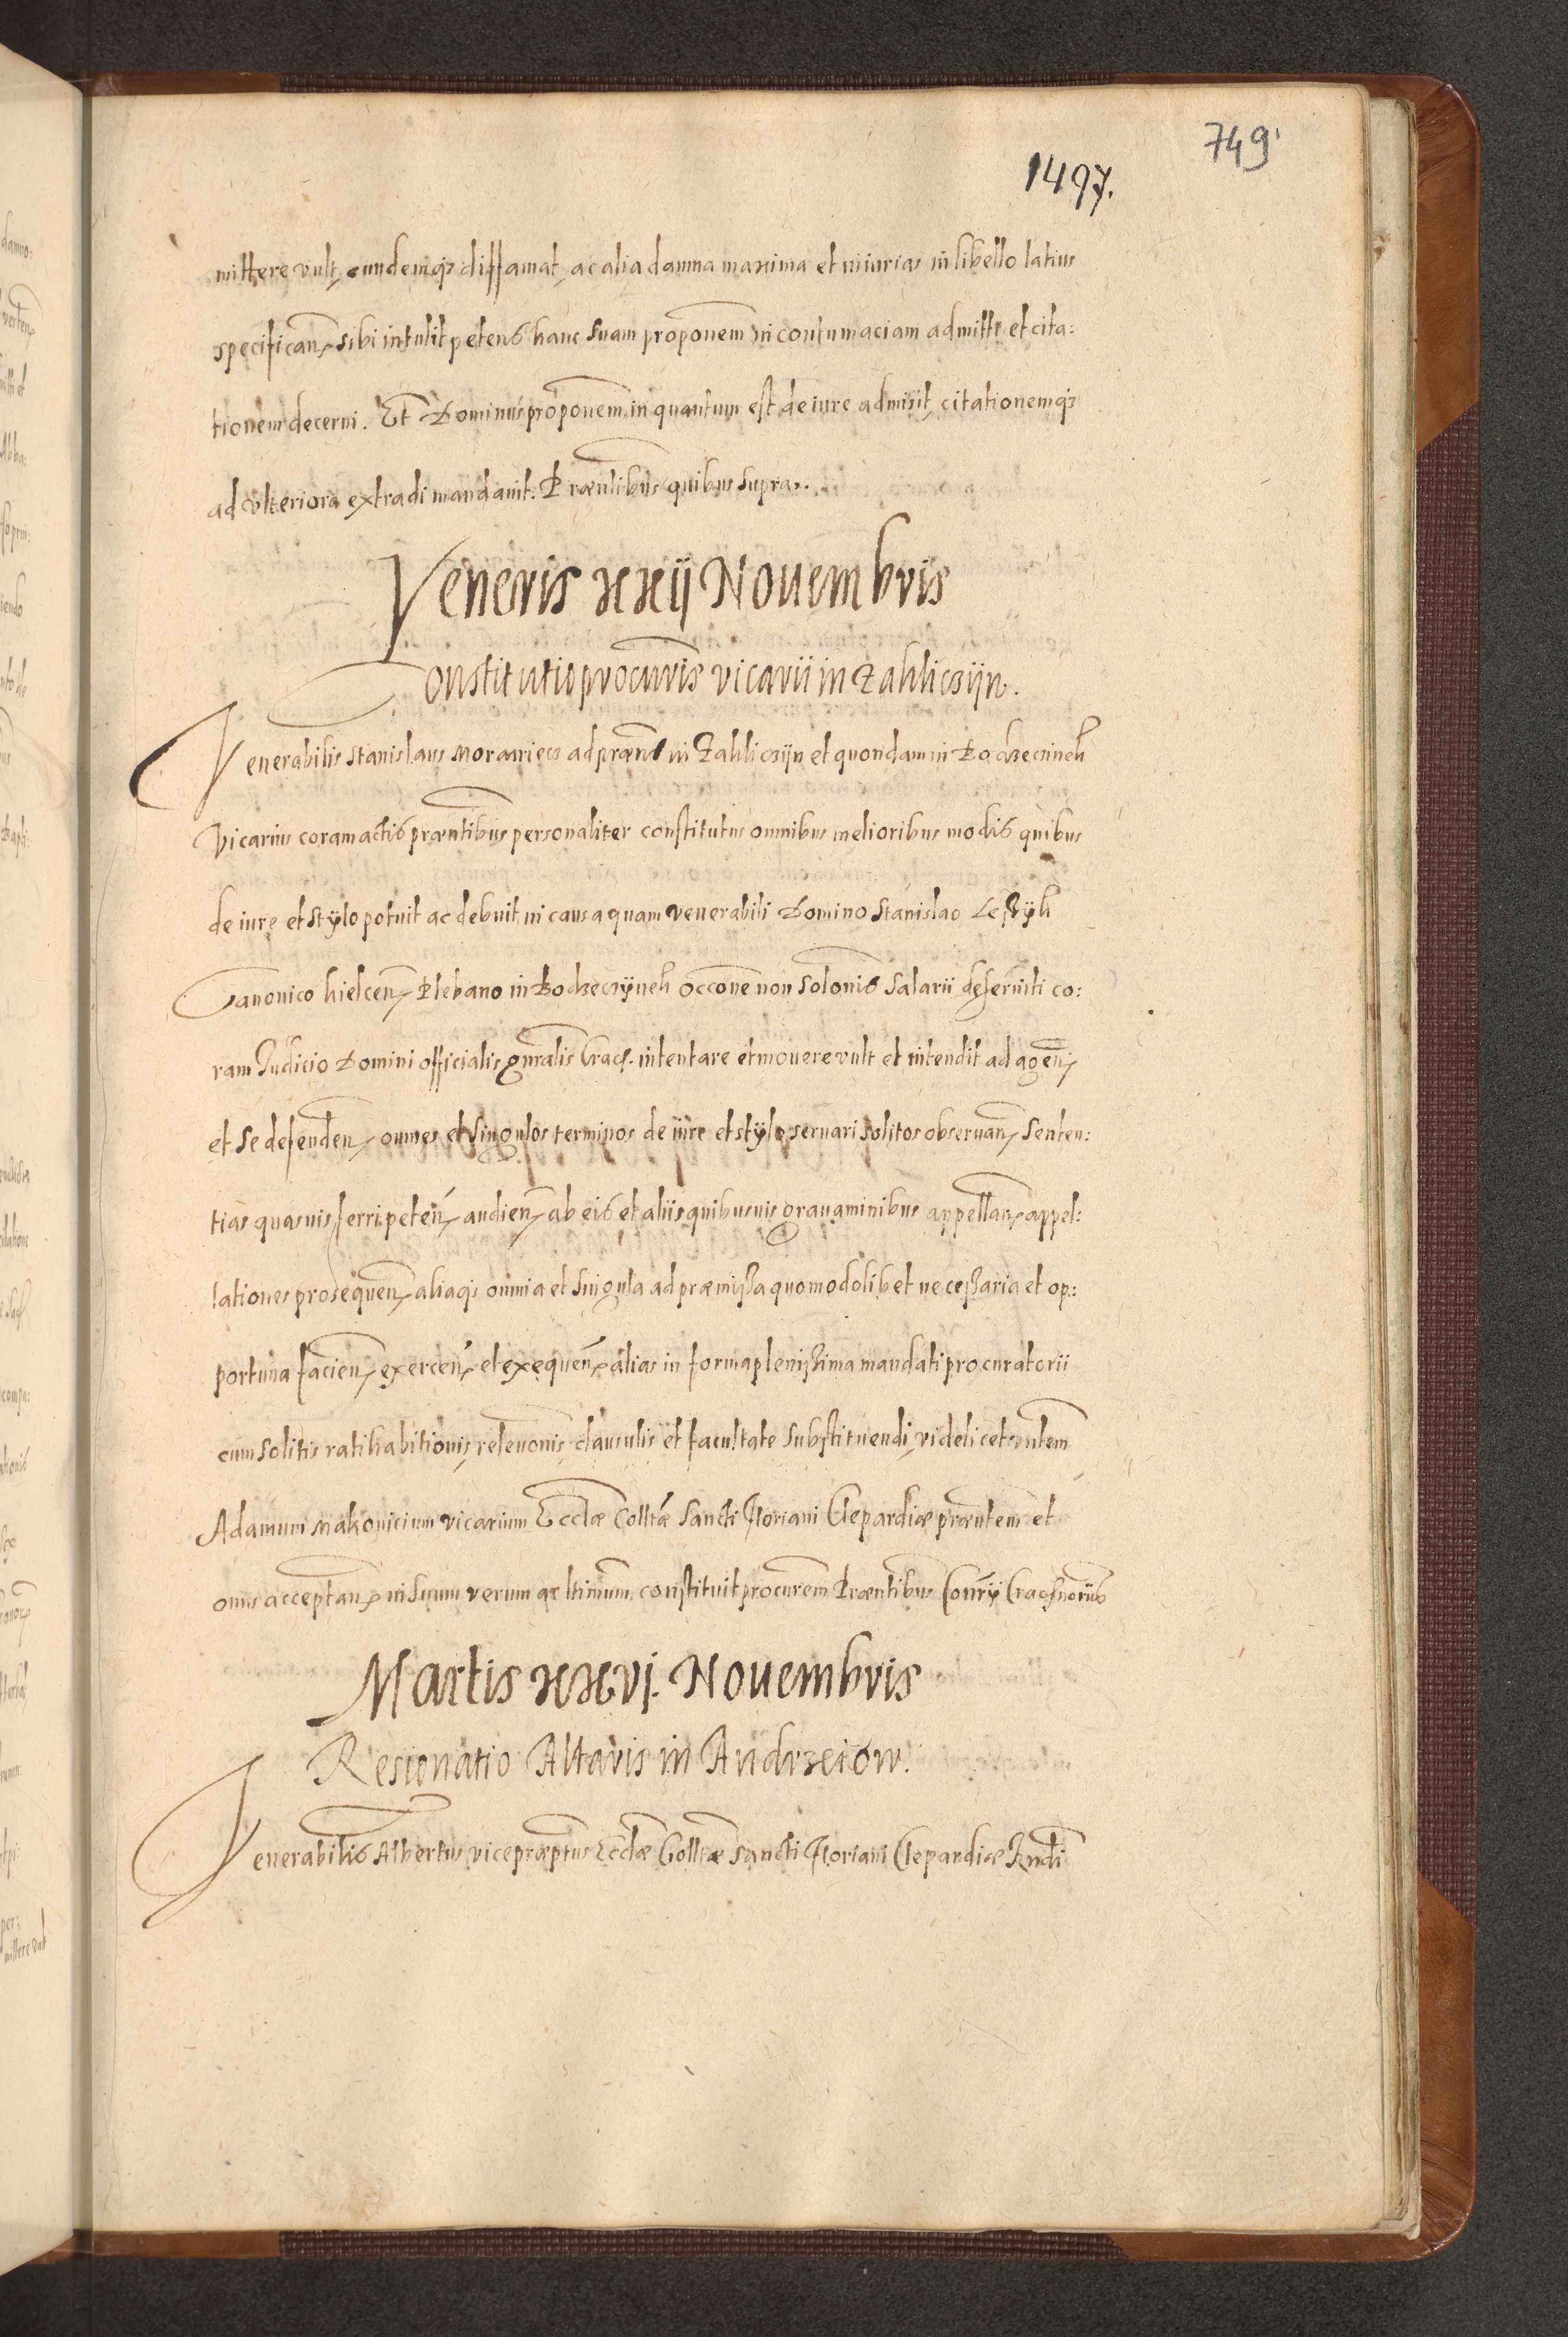 749
1497.
mittere vult, eundemq3 diffamat, ac alia damna maxima et iniurias in libello latius
specifican. sibi intulit petens hanc suam proponem in contumaciam admitti et cita:
tionem decerni. Et Dominus proponem in quantum est de iure admisit, citationemq3
ad ulteriora extradi mandavit. Præntibus quibus supra.
Veneris xxij Novembris
Constitutio procuris vicarii in Zakliczijn.
Venerabilis Stanislaus ad præns in Zakliczijn et quondam in Bodzeczineh
Vicarius coram actis præntibus personaliter constitutus omnibus melioribus modis quibus
de iure et stylo potuit ac debuit in causa quam venerabili Domino Stanislao
Canonico kielcen. Plebano in Bodzeczijneh occone non solonis salarii deserviti co:
ram Judicio Domini officialis gnralis Crac. intentare et movere vult et intendit ad agen.
et se defenden. omnes et singulos terminos de iure et stylo servari solitos observan. senten:
tias quasvis ferri peten. audien. ab eis et aliis quibusvis gravaminibus appellan. appel:
lationes prosequen. aliaq3 omnia et singula ad præmissa quomodolibet necessaria et op:
portuna facien. exercen. et exequen. alias in forma plenissima mandati procuratorii
cum solitis ratihabitionis, relevonis clausulis et facultate substituendi, videlicet vnlem
Adamum Makovicium vicarium Ecclæ Colltæ Sancti Floriani Clepardiæ præntem et
onus acceptan. in suum verum ac ltimum constituit procurem Præntibus
Martis xxvj. Novembris
Resignatio Altaris in Andrzeiow.
Venerabilis Albertus vicepræptus Ecclæ Colltæ Sancti Floriani Clepardiæ Rndi